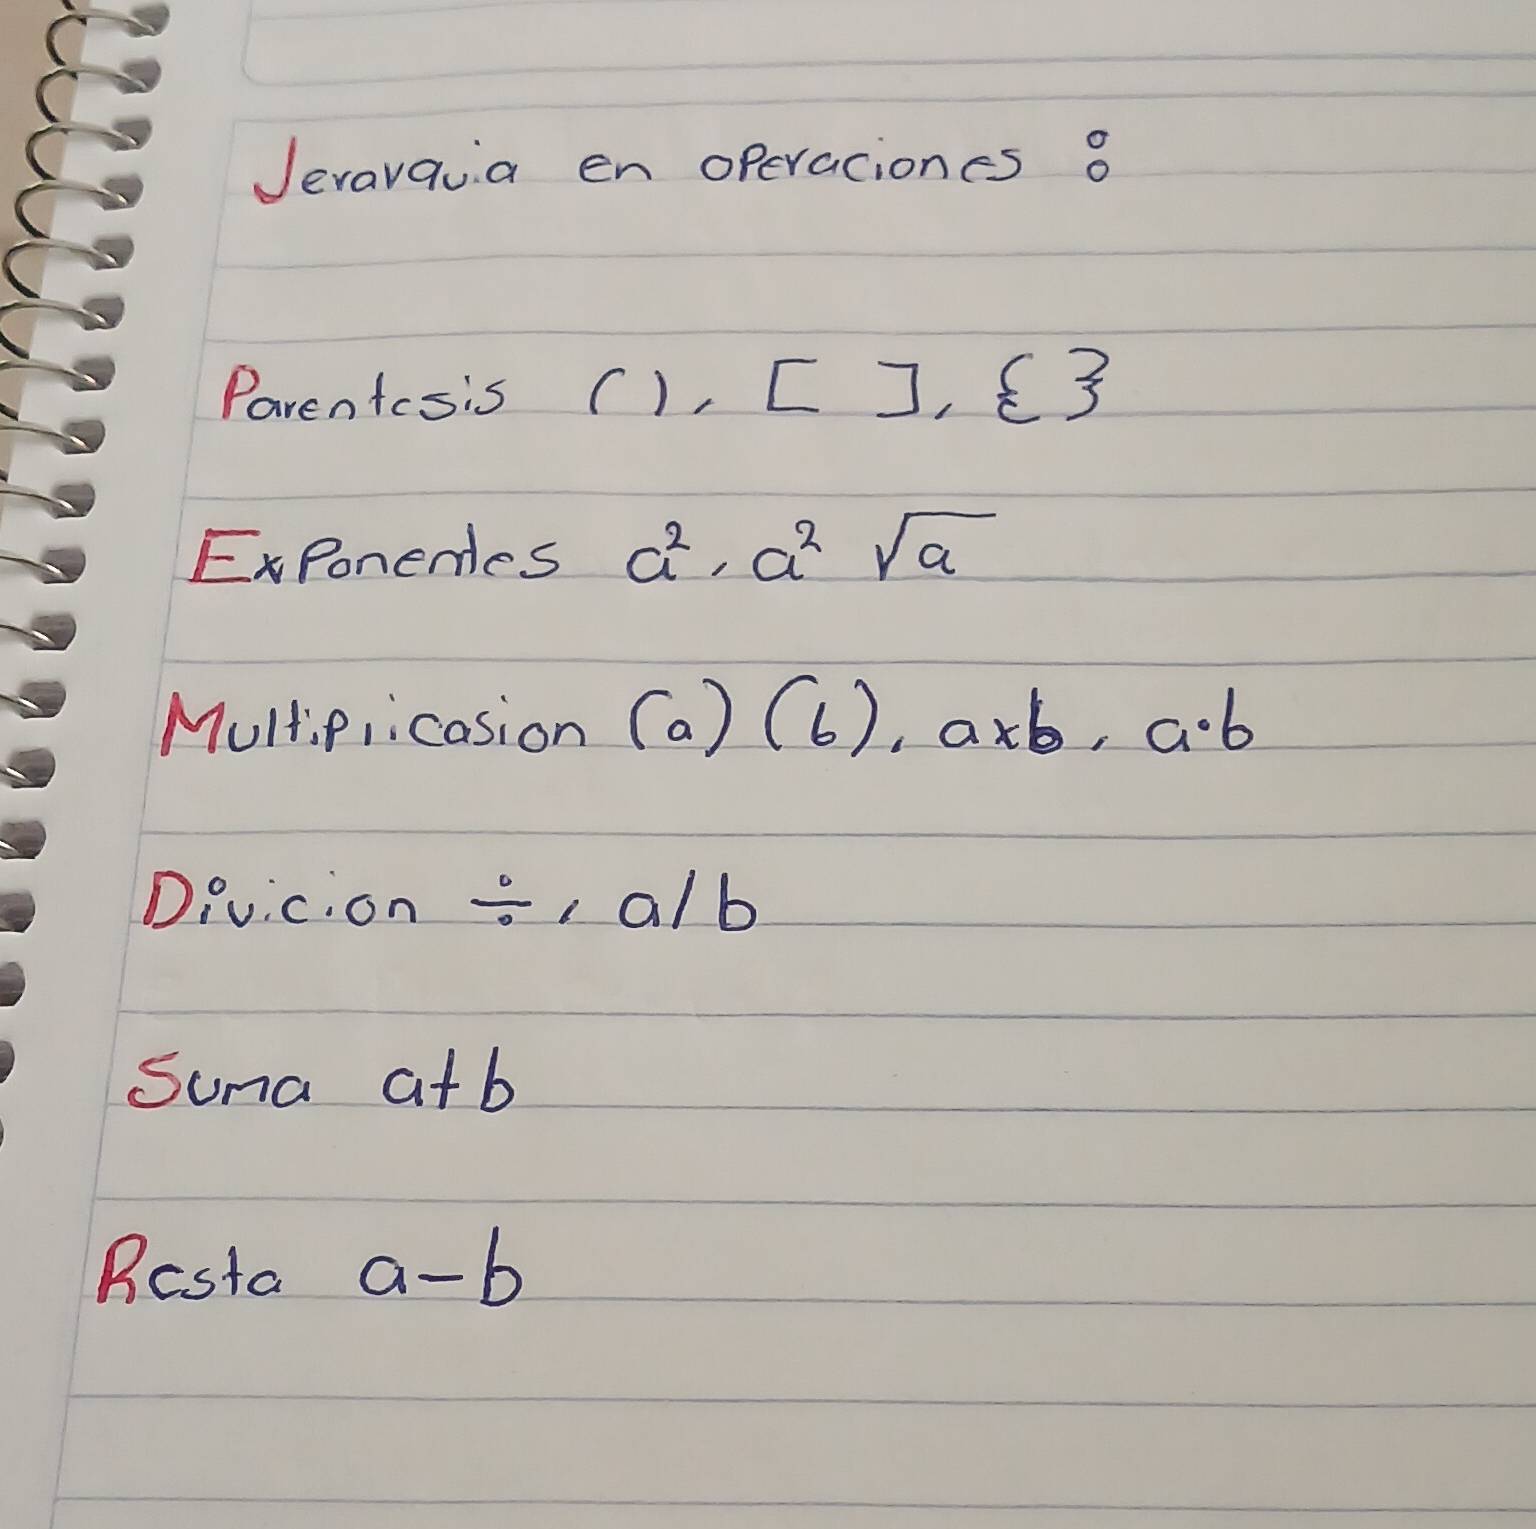 Jerarquia en operaciones :
Parentesis ( ), [ ], { }
Exponentes a², a² √a
Multiplicasion (a) (b), axb, a·b
Divicion ÷, a/b
Suma a+b
Resta a-b